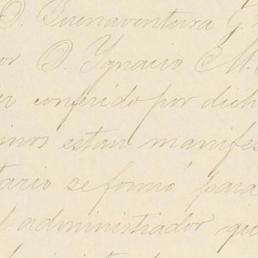 D. Buenaventura G.
or D. Ygnacio M.
er conferido por dich
inos estan manifes
tario se formó para
l administrador qu